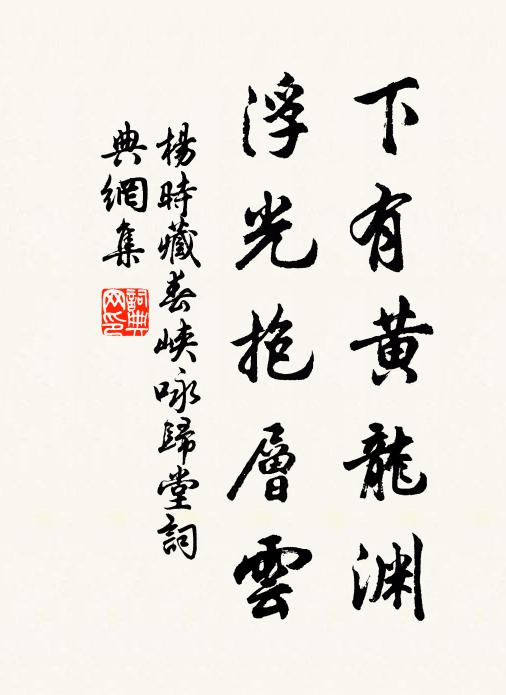 下有黄龍渊
浮光抱層雲
楊時藏春峽咏歸堂詞
典網集
詞典网印